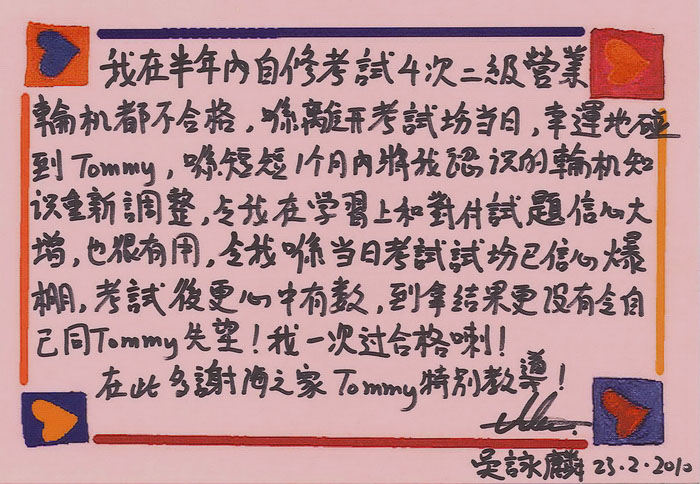 我在半年內自修考試4次二級營業
輪机都不合格，喺離開考試場当日，幸運地碰
到Tommy，喺短短1个月內將我認识的輪机知
识重新調整，令我在学習上和對付試題信心大
增，也很有用，令我喺当日考試試场已信心爆
棚，考試後更心中有数，到拿結果更没有令自
己同Tommy失望！我一次过合格喇！
在此多謝海之家Tommy特别教導！
吳詠麟 23.2.2010